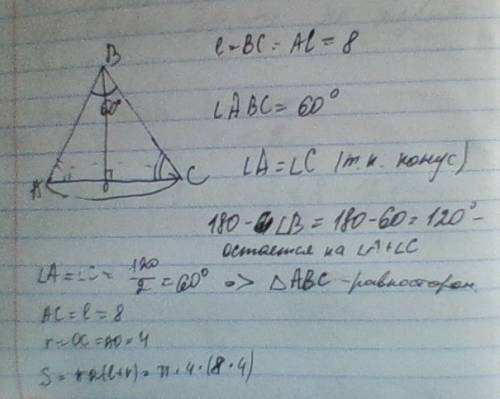 B
60°
A
C
0
l = BC = AC = 8
∠ABC = 60°
∠A = ∠C (т.к. конус)
180 - ∠B = 180 - 60 = 120° -
остаётся на ∠A + ∠C
∠A = ∠C = 120/2 = 60° => △ABC - равносторон.
AC = l = 8
r = OC = AO = 4
S = πr(l+r) = π · 4 · (8 · 4)